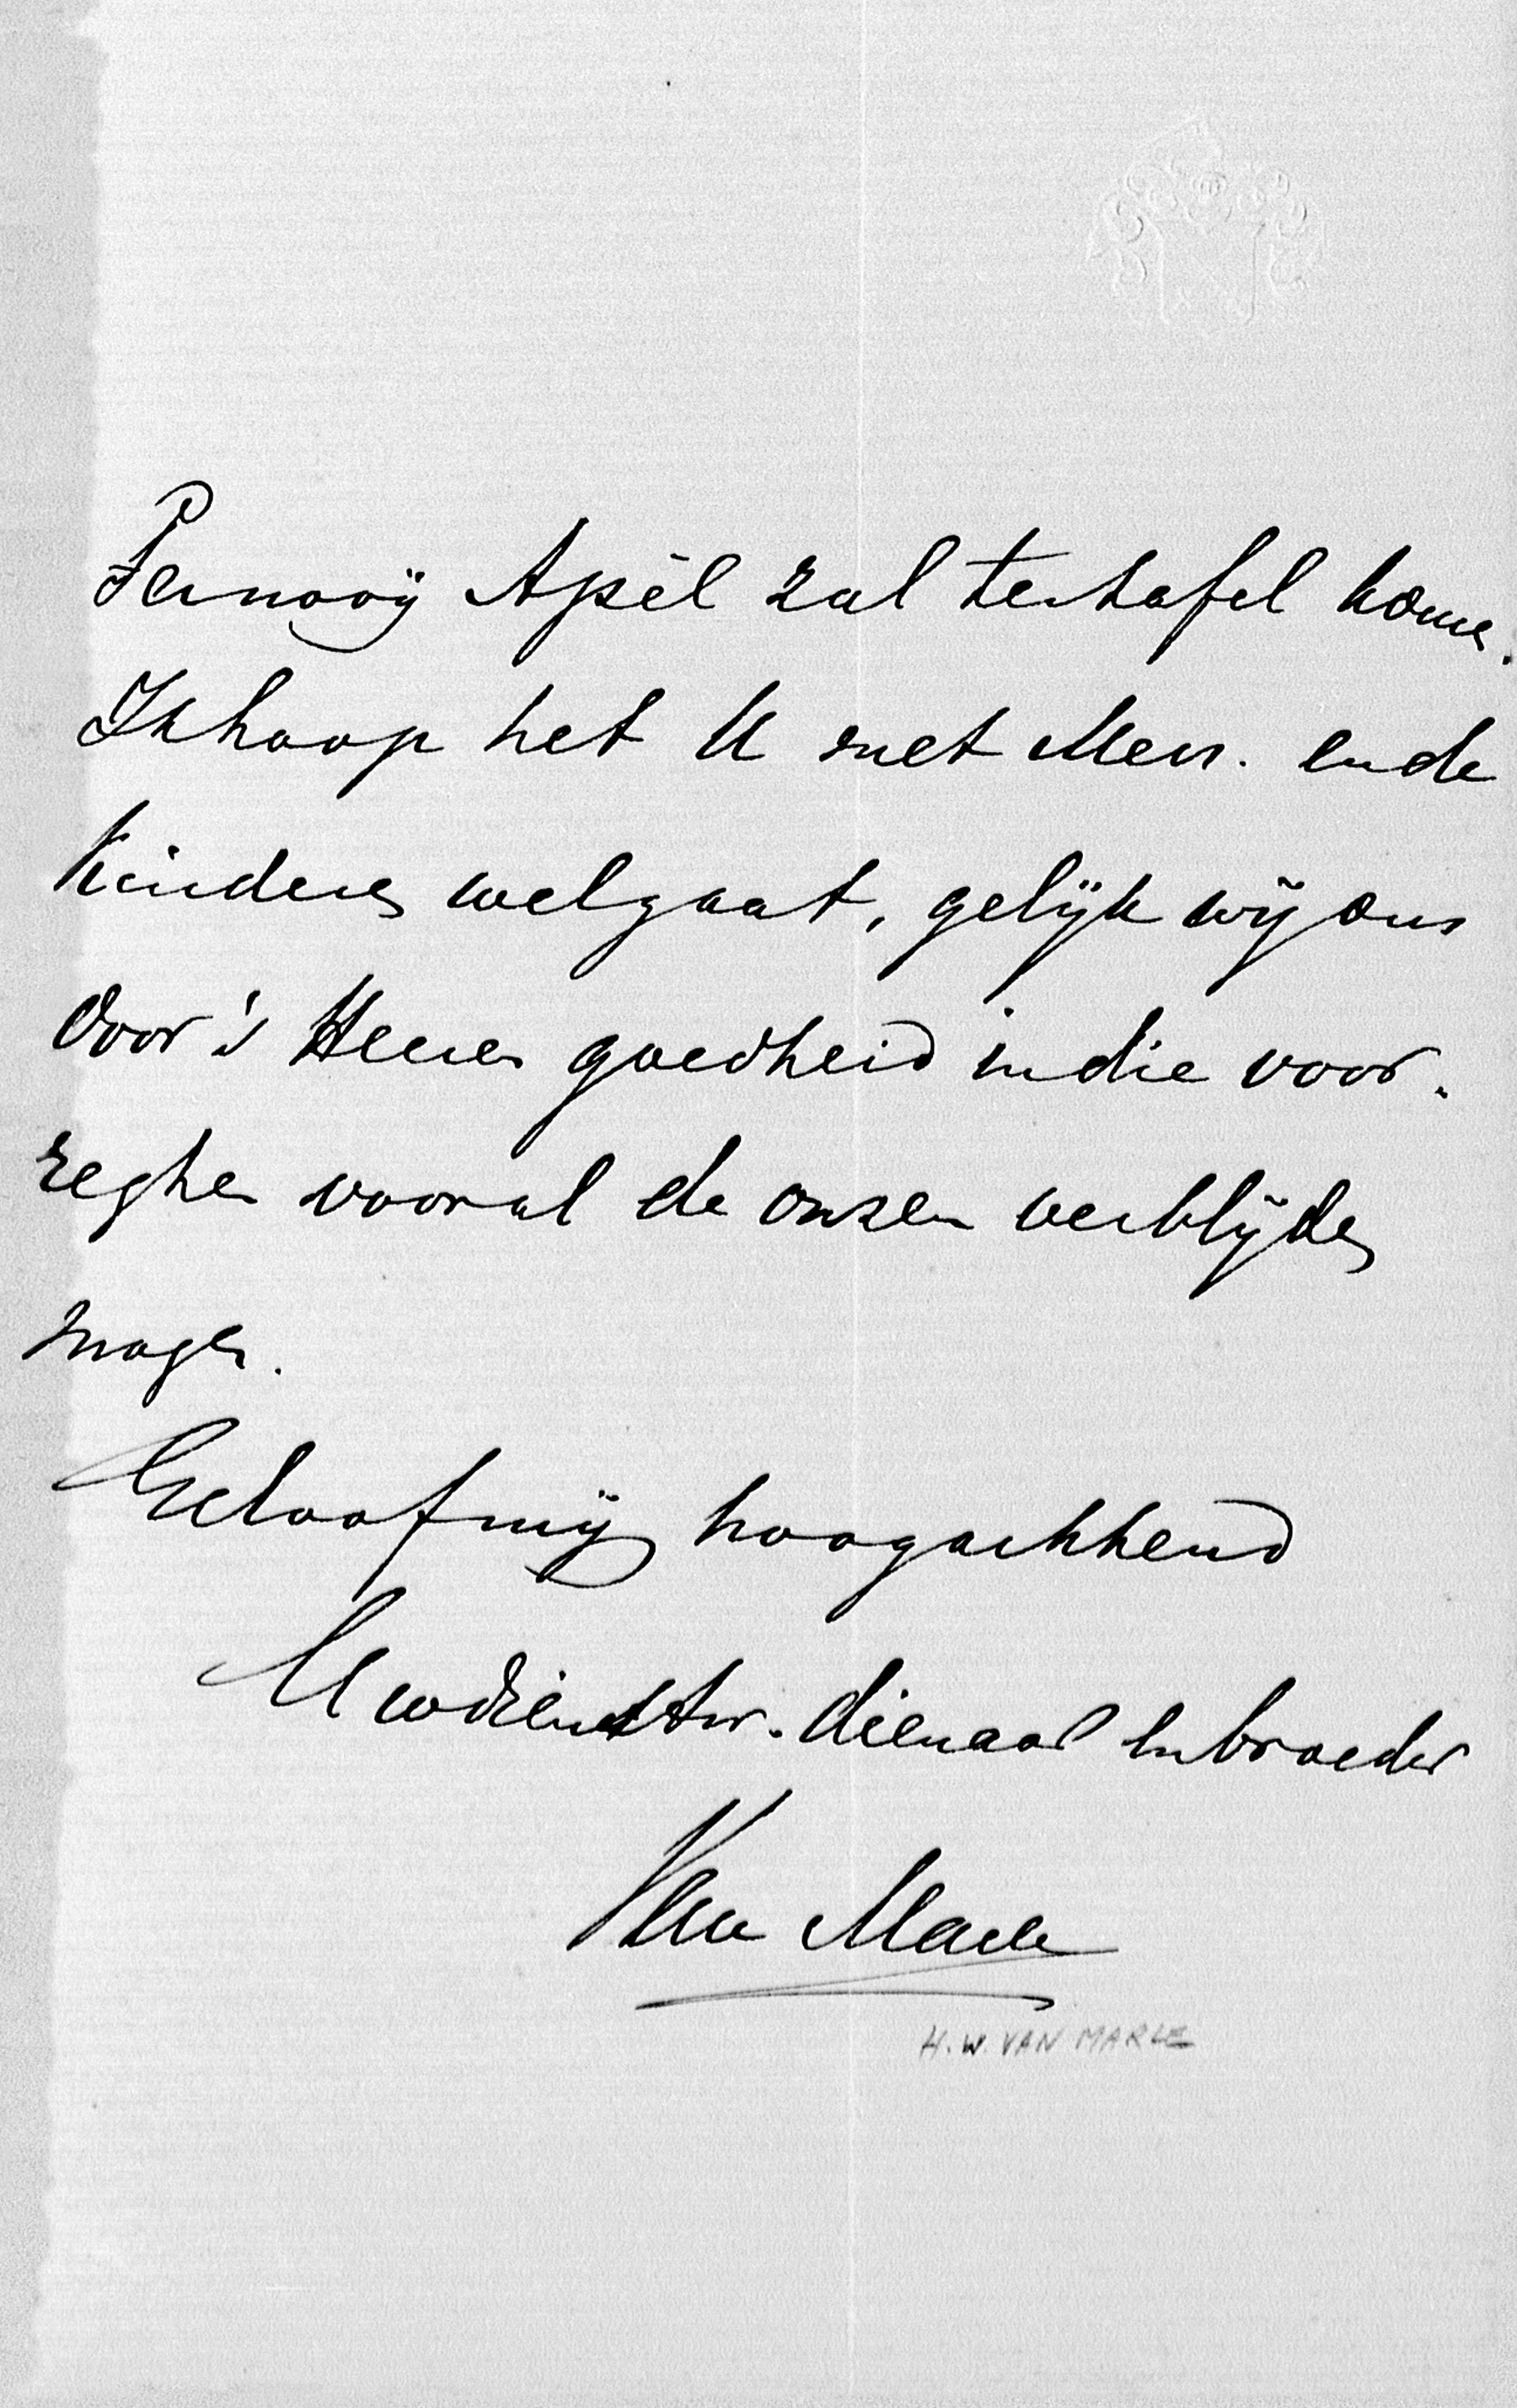 Pernooij Apèl zal ter tafel komen.
Ik hoop het U met Mevr. en de
Kinderen welgaat, gelijk wij ons
door 's Heeren goedheid in die voor-
regten vooral de onzen verblijden
mogen.
Geloof mij hoogachtend
Uw dienstw. dienaar en broeder
Van Marle
H. W. VAN MARLE